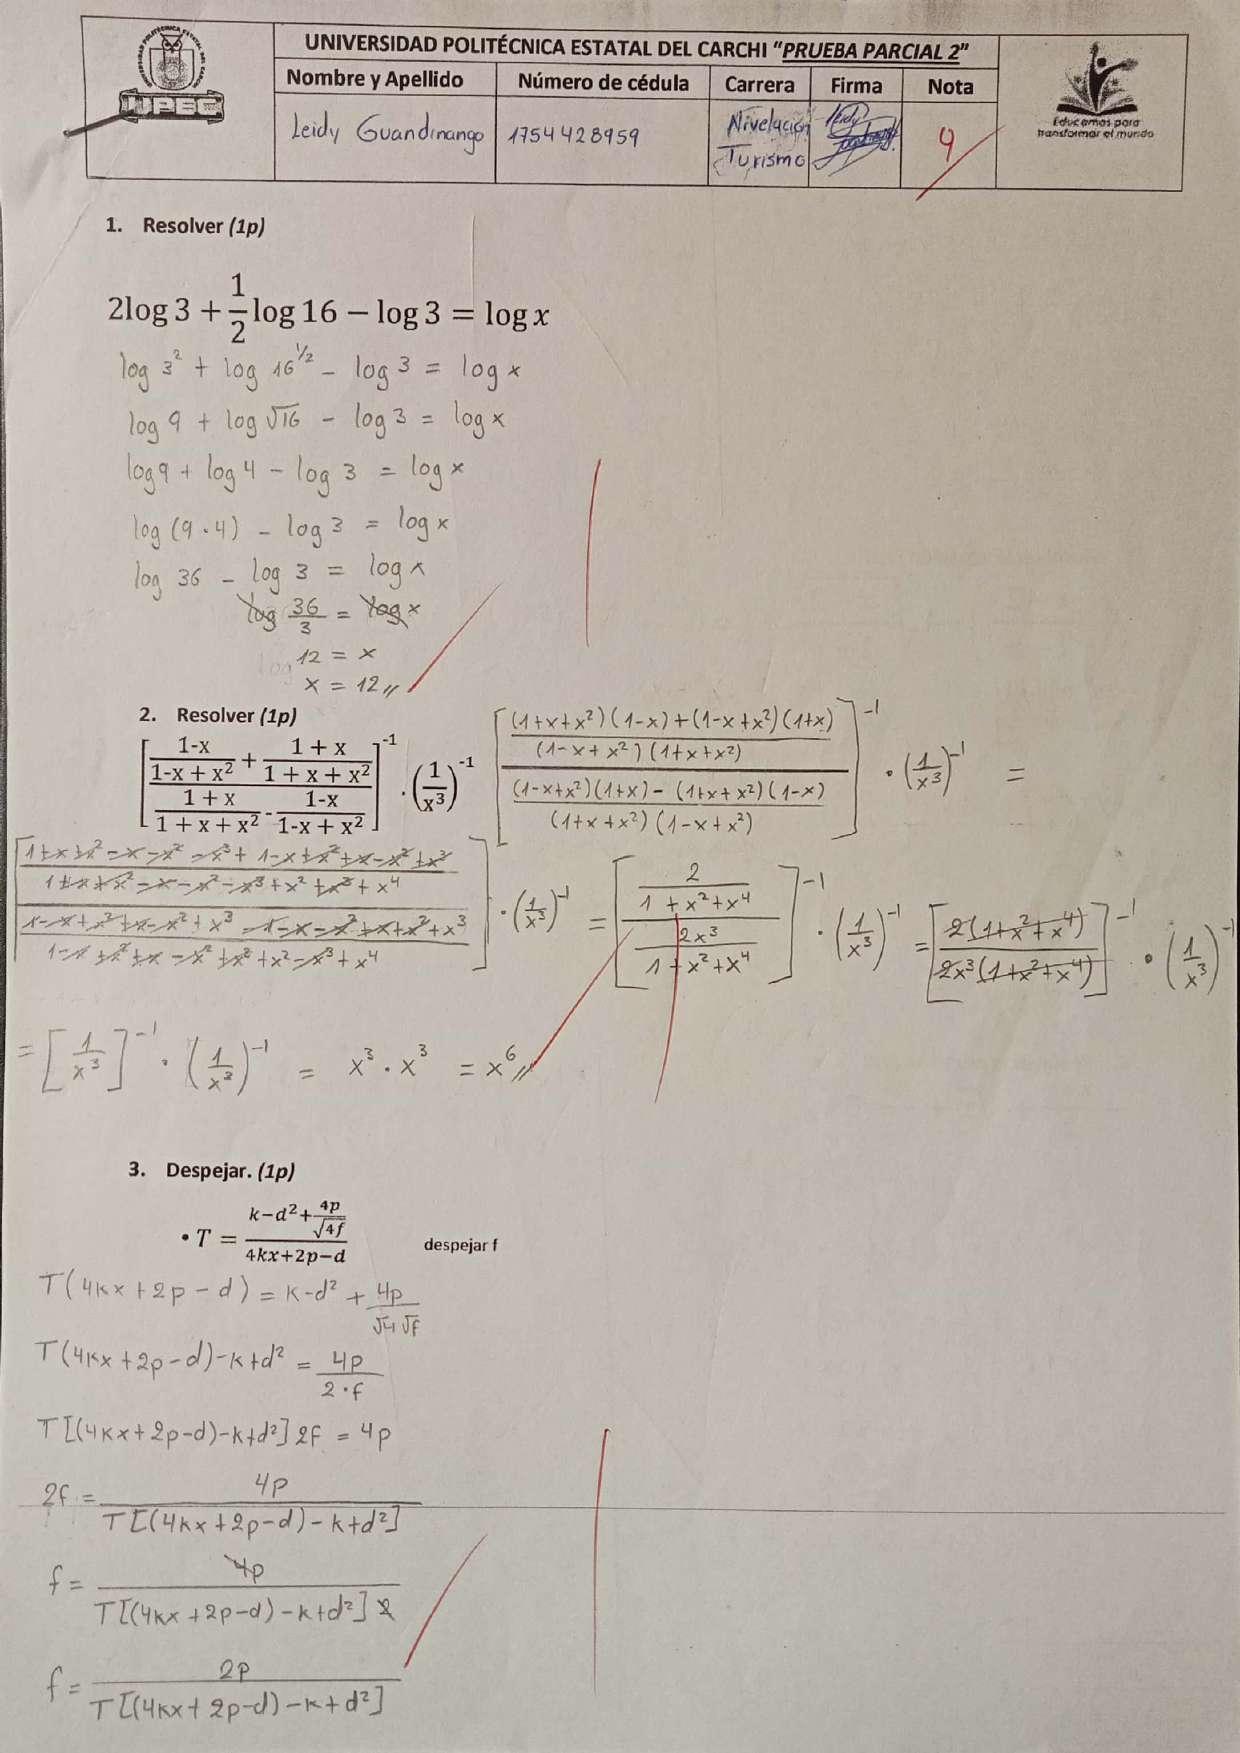 UNIVERSIDAD POLITÉCNICA ESTATAL DEL CARCHI "PRUEBA PARCIAL 2"
UPEC
Nombre y Apellido Número de cédula Carrera Firma Nota
Leidy Guandinango 1754428959 Nivelación Turismo 4
Educamos para transformar el mundo
1. Resolver (1p)
2log 3 + 1/2 log 16 − log 3 = log x
log 3² + log 16^1/2 − log 3 = log x
log 9 + log √16 − log 3 = log x
log 9 + log 4 − log 3 = log x
log (9 · 4) − log 3 = log x
log 36 − log 3 = log x
log 36/3 = log x
12 = x
x = 12 //
2. Resolver (1p)
[((1-x)/(1-x + x²) + (1 + x)/(1 + x + x²)) / ((1 + x)/(1 + x + x²) - (1-x)/(1-x + x²))]^-1 · (1/x³)^-1
[(((1+x+x²)(1-x)+(1-x+x²)(1+x)) / ((1-x+x²)(1+x+x²))) / (((1-x+x²)(1+x) − (1+x+x²)(1-x)) / ((1+x+x²)(1-x+x²)))]^-1 · (1/x³)^-1 =
· (1/x³)^-1 = [(2/(1+x²+x⁴)) / (2x³/(1+x²+x⁴))]^-1 · (1/x³)^-1 = [2(1+x²+x⁴) / 2x³(1+x²+x⁴)]^-1 · (1/x³)^-1
= [1/x³]^-1 · (1/x³)^-1 = x³ · x³ = x⁶ //
3. Despejar. (1p)
• T = (k−d²+4p/√4f) / (4kx+2p−d) despejar f
T(4kx+2p−d) = k-d² + 4p/√4 √f
T(4kx+2p−d)−k+d² = 4p/2·f
T[(4kx+2p-d)-k+d²] 2f = 4p
2f = 4p / T[(4kx+2p-d)−k+d²]
f = 4p / T[(4kx+2p-d)−k+d²] 2
f = 2p / T[(4kx+2p-d)−k+d²]